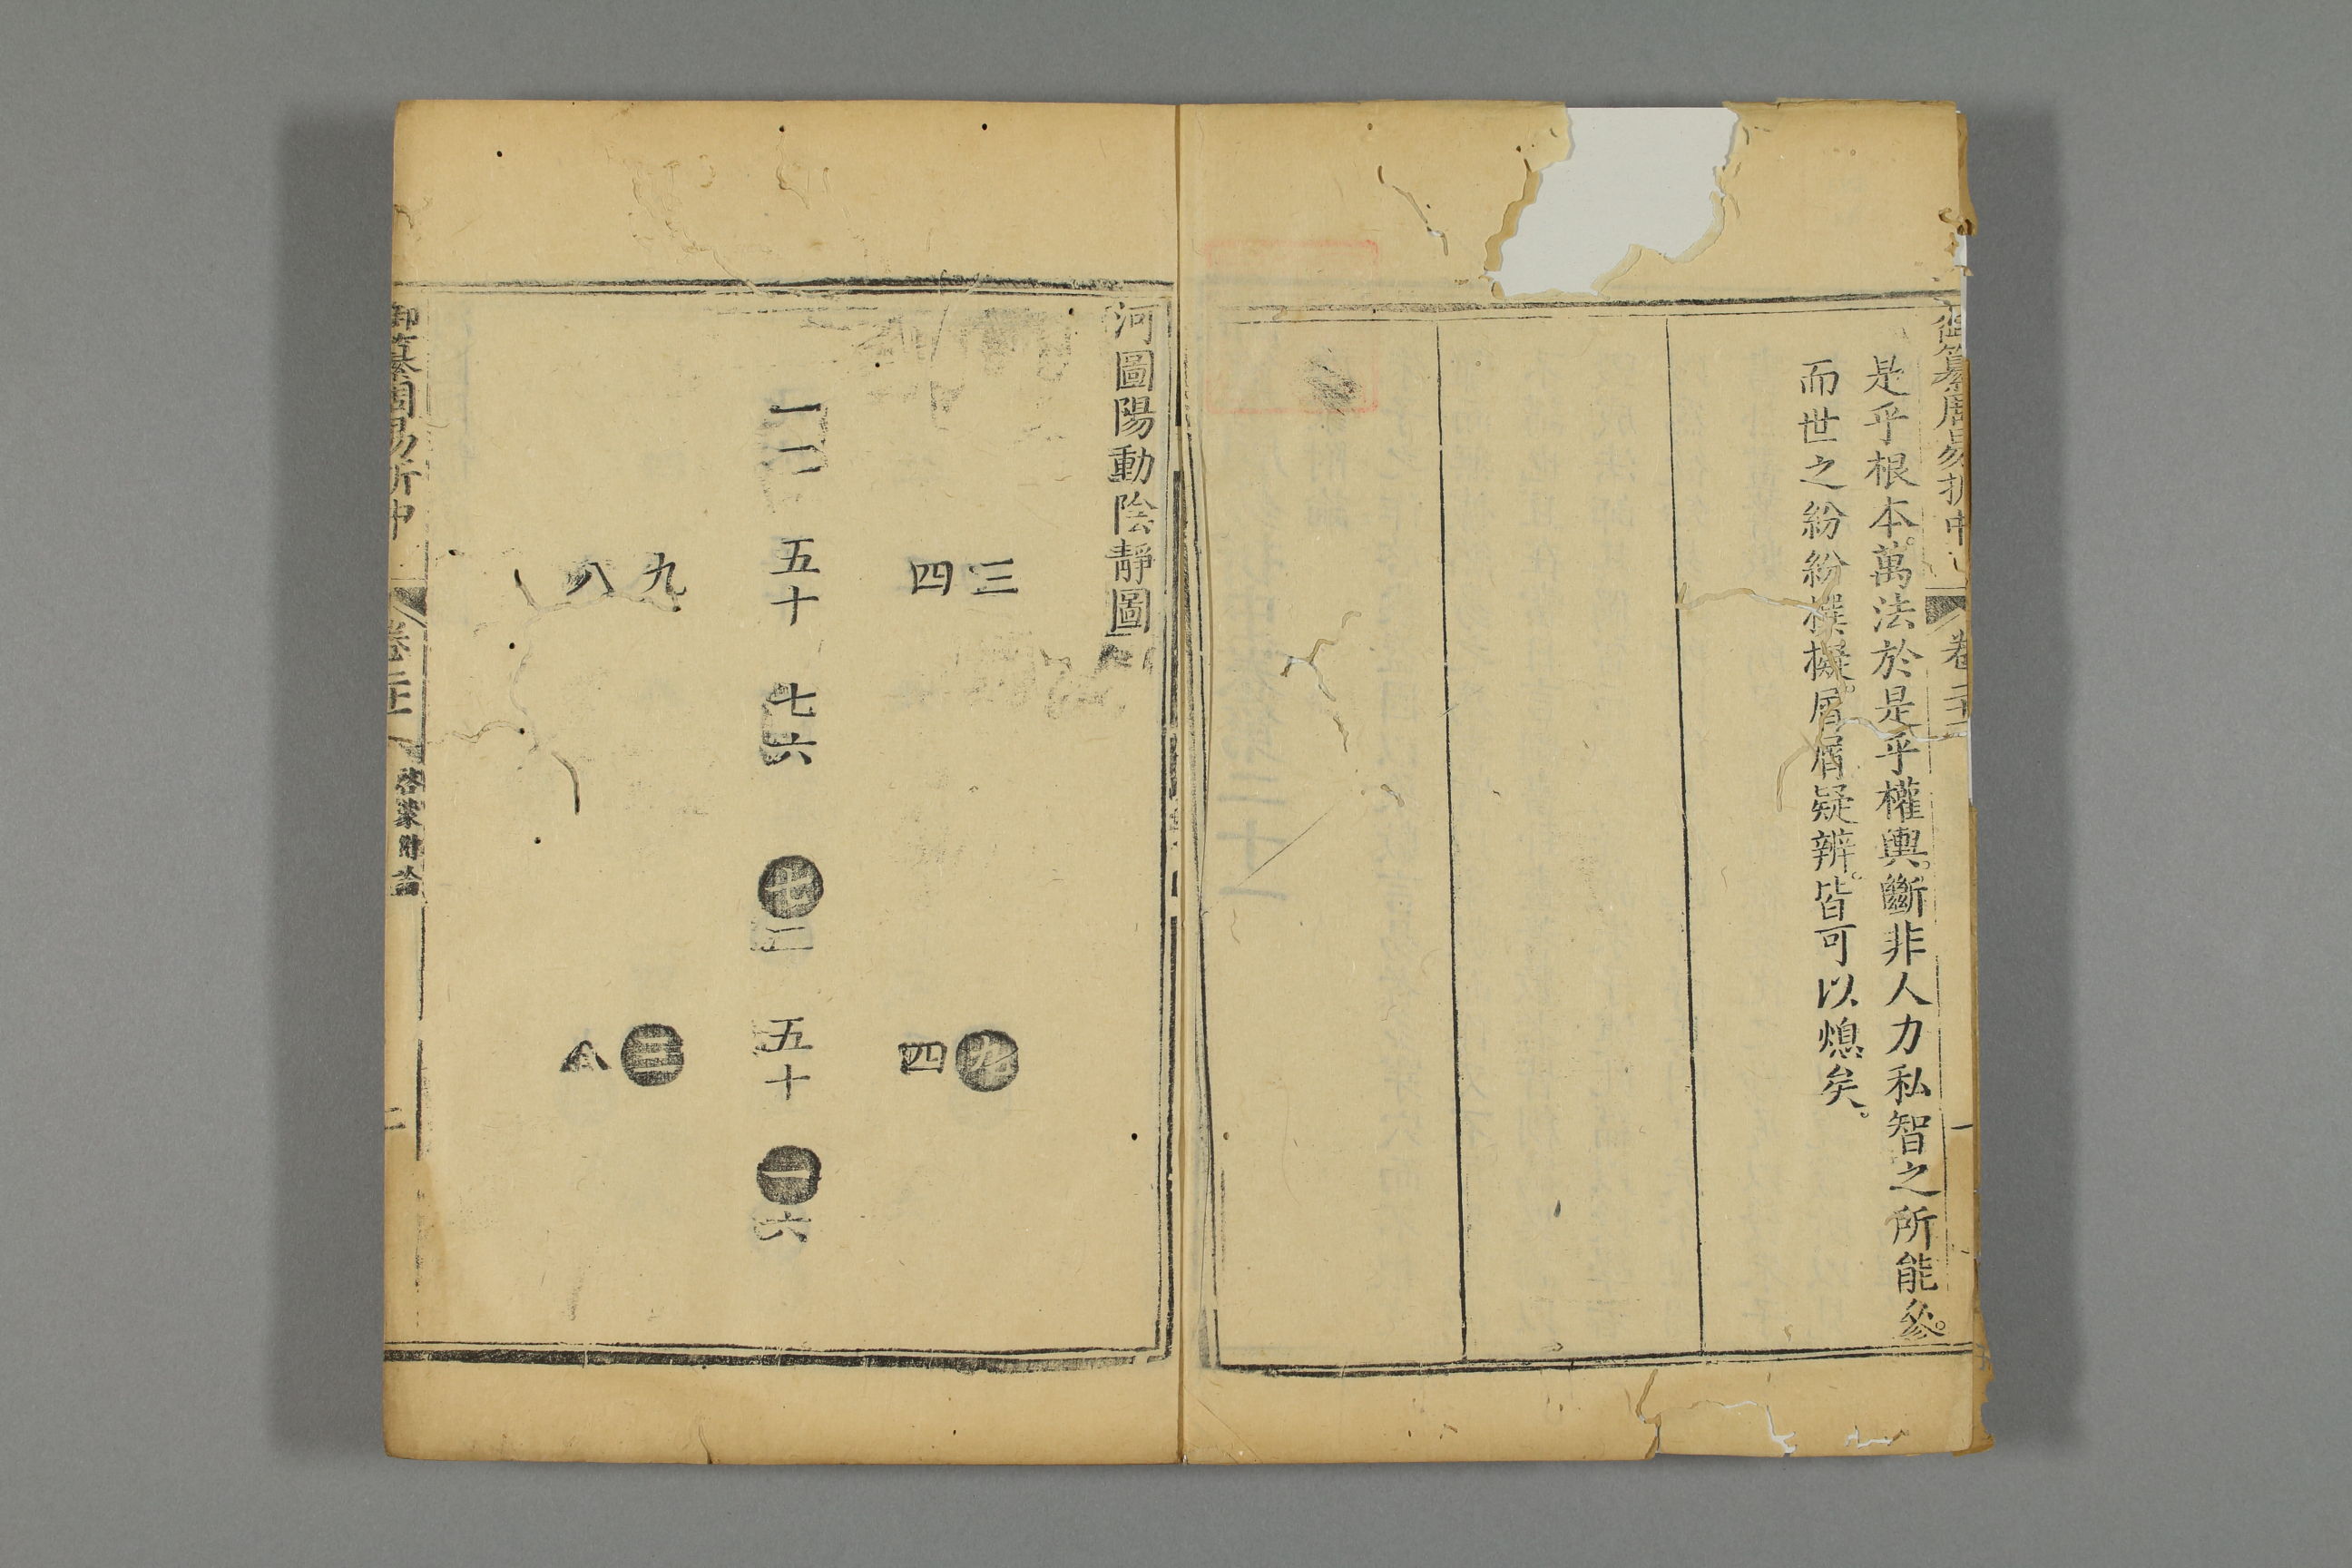 御纂周易折中
卷二十一
一
是乎根本。萬法於是乎權輿。斷非人力私智之所能參。
而世之紛紛撰擬。屑屑疑辨。皆可以熄矣。
河圖陽動陰靜圖
三
四
一二
五十
七六
九
八
九
四
七二
五十
一六
三
八
御纂周易折中
卷二十一
啓蒙附論
二